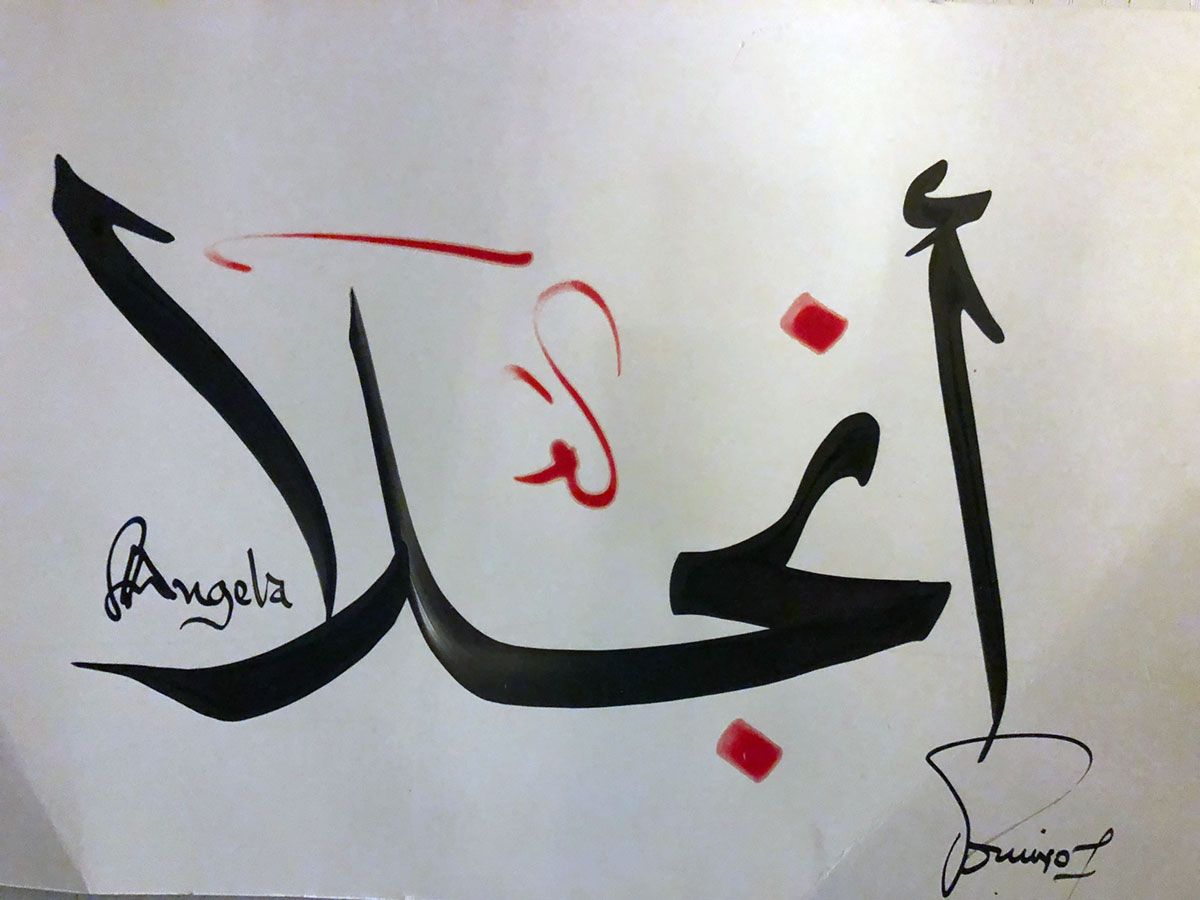 أنجلا
Angela